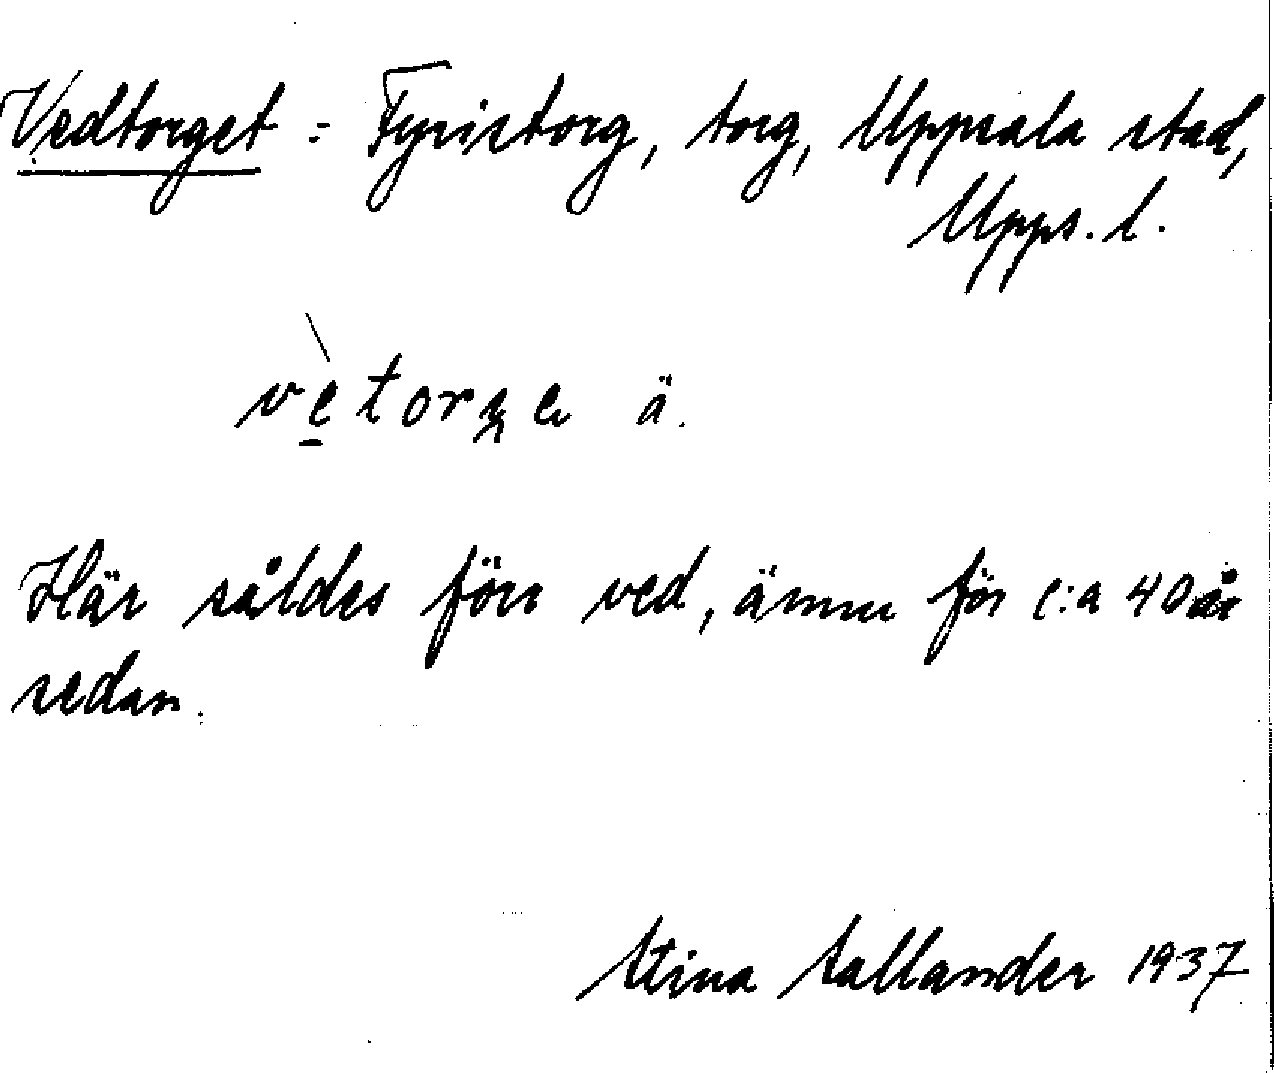 Vedtorget = Fyristorg, torg, Uppsala stad,
Upps. l.
vètorge ä.
Här såldes förr ved, ännu för c:a 40 år
sedan.
Stina Sallander 1937